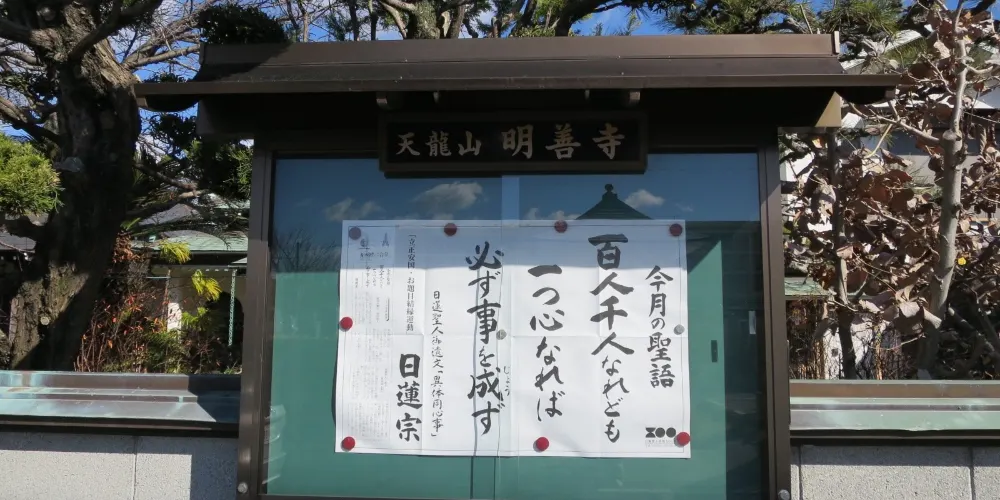 天龍山 明善寺
今月の聖語
百人千人なれども
一つ心なれば
必ず事を成ず
じょう
日蓮聖人御遺文「異体同心事」
「立正安国・お題目結縁運動」
日蓮宗